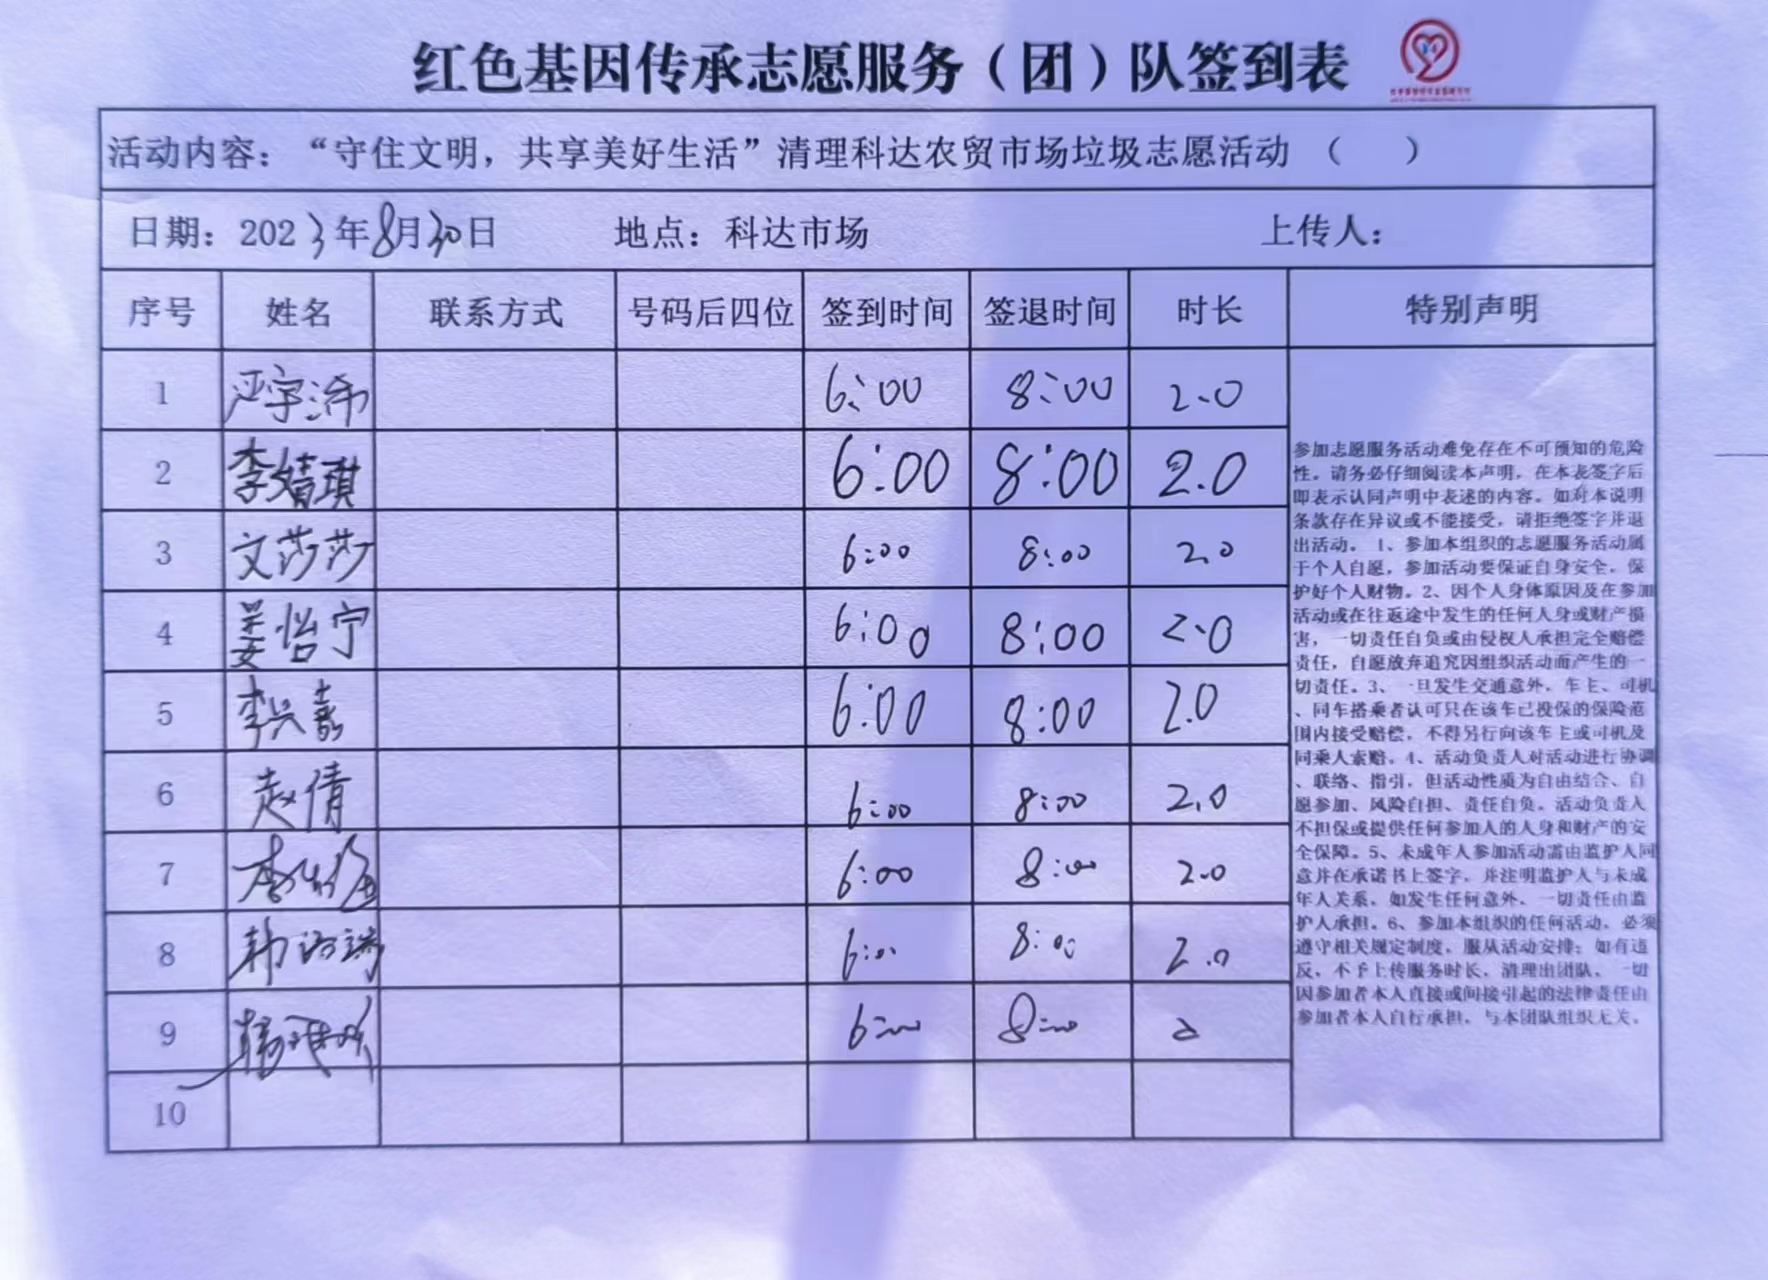 红色基因传承志愿服务（团）队签到表
活动内容：“守住文明，共享美好生活”清理科达农贸市场垃圾志愿活动（ ）
日期：2023年8月30日 地点：科达市场 上传人：
序号 姓名 联系方式 号码后四位 签到时间 签退时间 时长 特别声明
1 严宇沛 6:00 8:00 2.0
2 李婧琪 6:00 8:00 2.0
3 文莎莎 6:00 8:00 2.0
4 姜怡宁 6:00 8:00 2.0
5 李兴嘉 6:00 8:00 2.0
6 赵倩 6:00 8:00 2.0
7 6:00 8:00 2.0
8 6:00 8:00 2.0
9 6:00 8:00 2
10
参加志愿服务活动难免存在不可预知的危险
性。请务必仔细阅读本声明，在本表签字后
即表示认同声明中表述的内容。如对本说明
条款存在异议或不能接受，请拒绝签字并退
出活动。1、参加本组织的志愿服务活动属
于个人自愿，参加活动要保证自身安全，保
护好个人财物。2、因个人身体原因及在参加
活动或在往返途中发生的任何人身或财产损
害，一切责任自负或由侵权人承担完全赔偿
责任，自愿放弃追究因组织活动而产生的一
切责任。3、一旦发生交通意外，车主、司机
、同车搭乘者认可只在该车已投保的保险范
围内接受赔偿，不得另行向该车主或司机及
同乘人索赔。4、活动负责人对活动进行协调
、联络、指引，但活动性质为自由结合、自
愿参加、风险自担、责任自负。活动负责人
不担保或提供任何参加人的人身和财产的安
全保障。5、未成年人参加活动需由监护人同
意并在承诺书上签字，并注明监护人与未成
年人关系，如发生任何意外，一切责任由监
护人承担。6、参加本组织的任何活动，必须
遵守相关规定制度，服从活动安排；如有违
反，不予上传服务时长，清理出团队，一切
因参加者本人直接或间接引起的法律责任由
参加者本人自行承担，与本团队组织无关。